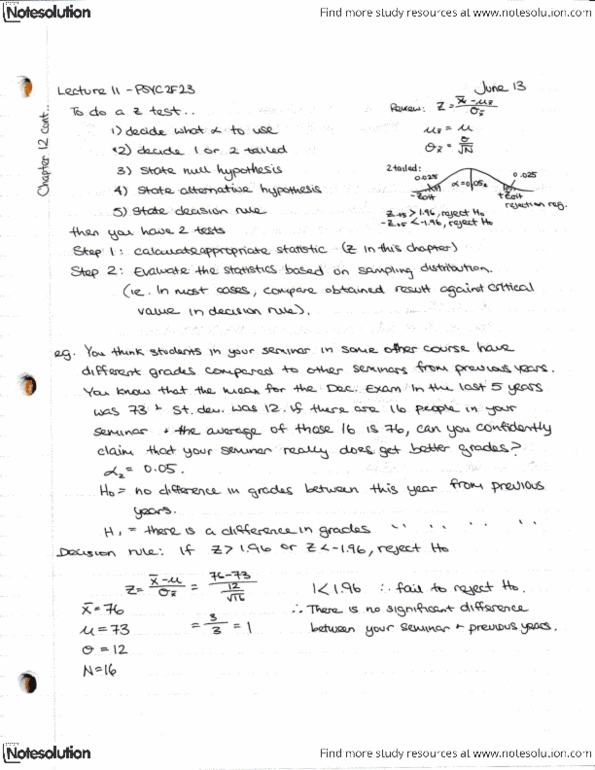 Notesolution
Find more study resources at www.notesolution.com
Lecture 11 - PSYC2F23
June 13
Chapter 12 cont..
To do a z test..
1) decide what α to use
*2) decide 1 or 2 tailed
3) State null hypothesis
4) State alternative hypothesis
5) State decision rule
then you have 2 tests
Review: Z = x̄ - μx̄ / σx̄
μx̄ = μ
σx̄ = σ / √N
2 tailed:
0.025
α = 0.05₂
0.025
-Zcrit
+Zcrit
rejection reg.
Z.05 > 1.96, reject H₀
-Z.05 < -1.96, reject H₀
Step 1: calculate appropriate statistic (Z in this chapter)
Step 2: Evaluate the statistics based on sampling distribution.
(ie. In most cases, compare obtained result against critical
value in decision rule).
eg. You think students in your seminar in some other course have
different grades compared to other seminars from previous years.
You know that the mean for the Dec. Exam in the last 5 years
was 73 + St. dev. was 12. If there are 16 people in your
seminar + the average of those 16 is 76, can you confidently
claim that your seminar really does get better grades?
α₂ = 0.05.
H₀ = no difference in grades between this year from previous
years.
H₁ = there is a difference in grades " " " "
Decision rule: If Z > 1.96 or Z < -1.96, reject H₀
Z = x̄ - μ / σx̄ = 76 - 73 / 12 / √16
= 3 / 3 = 1
x̄ = 76
μ = 73
σ = 12
N = 16
1 < 1.96 ∴ fail to reject H₀.
∴ There is no significant difference
between your seminar + previous years.
Notesolution
Find more study resources at www.notesolution.com